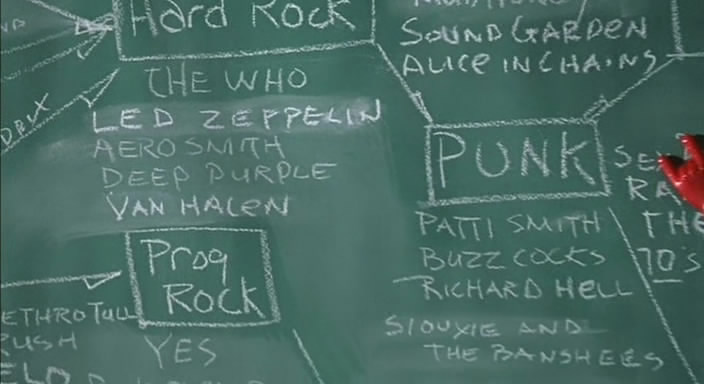 Hard Rock
THE WHO
LED ZEPPELIN
AEROSMITH
DEEP PURPLE
VAN HALEN
SOUNDGARDEN
ALICE IN CHAINS
PUNK
PATTI SMITH
BUZZCOCKS
RICHARD HELL
SIOUXIE AND
THE BANSHEES
SE
RA
THE
70's
Prog
Rock
ETHRO TULL
RUSH
YES
ELO